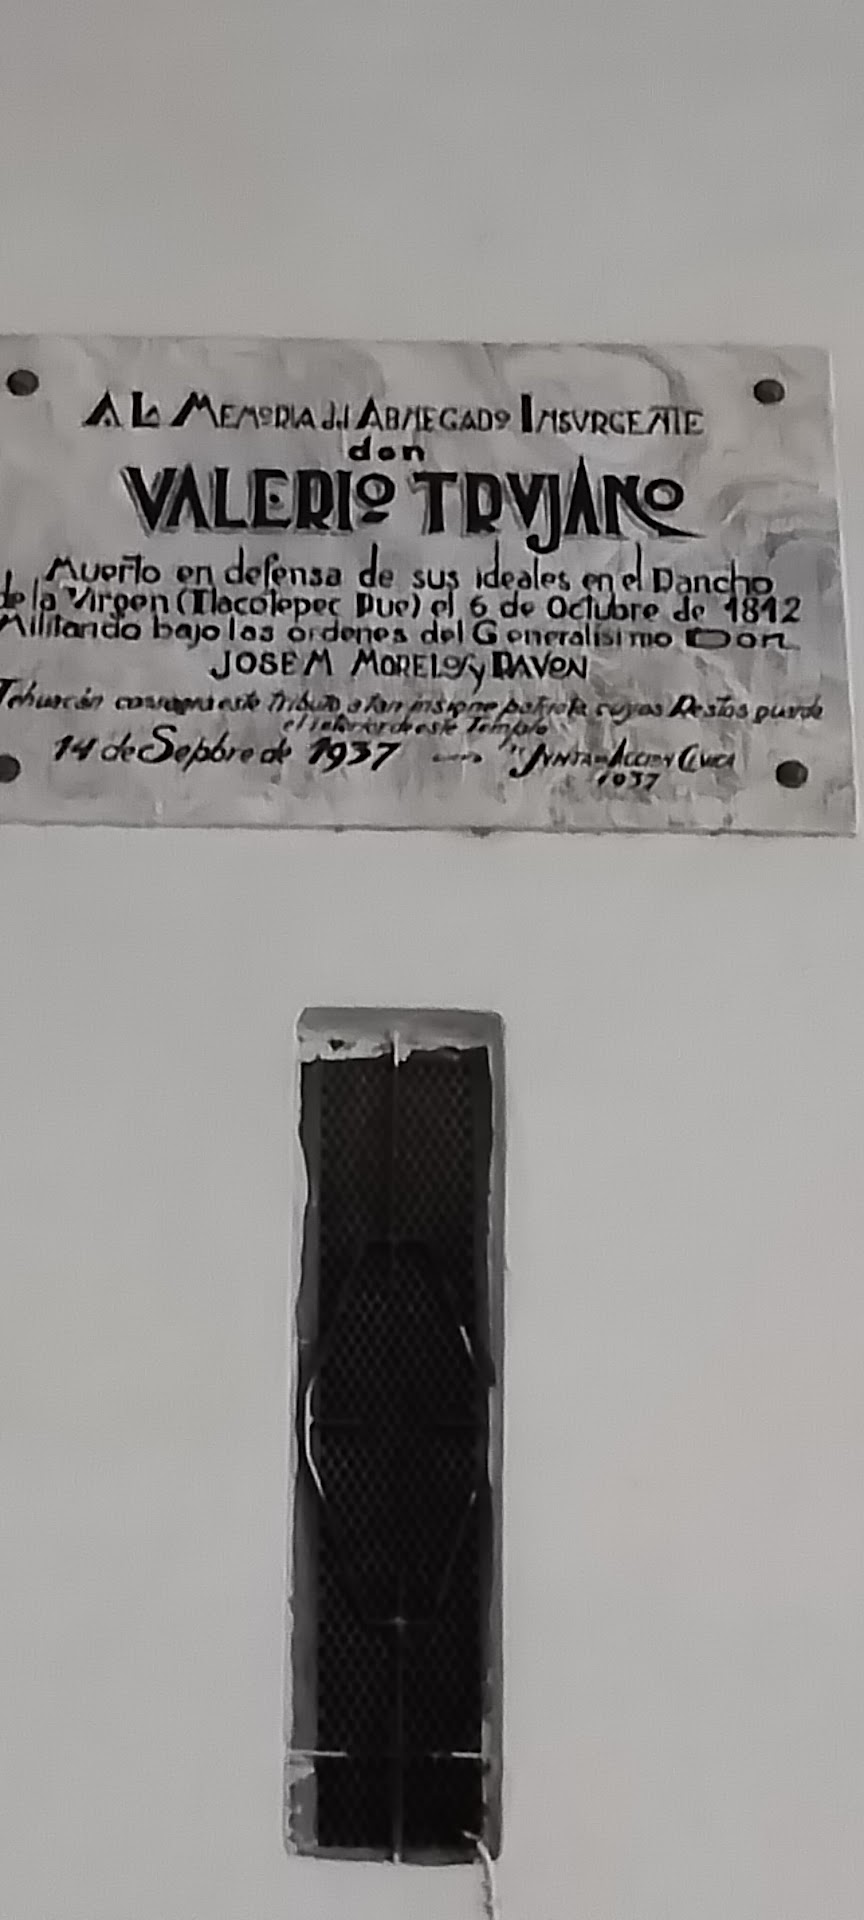 A LA MEMORIA del ABNEGADO INSURGENTE
don
VALERIO TRUJANO
Muerto en defensa de sus ideales en el Rancho
de la Virgen (Tlacotepec Pue) el 6 de Octubre de 1812
Militando bajo las ordenes del Generalisimo Don
JOSE M MORELOS y PAVON
Tehuacán consagra este Tributo a tan insigne patriota cuyos Restos guarda
el interior de este Templo
14 de Sepbre de 1937 JUNTA DE ACCION CIVICA
1937